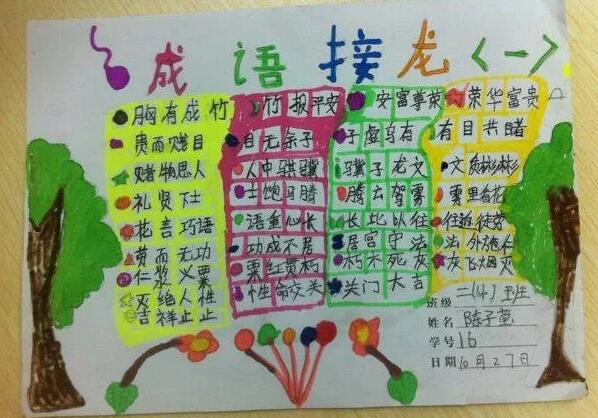 成语接龙〈一〉
胸有成竹 竹报平安 安富尊荣 荣华富贵
贵而贱目 目无余子 子虚乌有 有目共睹
睹物思人 人中骐骥 骥子龙文 文质彬彬
礼贤下士 士饱马腾 腾云驾雾 雾里看花
花言巧语 语重心长 长此以往 往返徒劳
劳而无功 功成不居 居官守法 法外施仁
仁浆义粟 粟红贯朽 朽木死灰 灰飞烟灭
灭绝人性 性命交关 关门大吉
吉祥止止
班级 二(4)班
姓名 陈子萱
学号 16
日期 10月27日